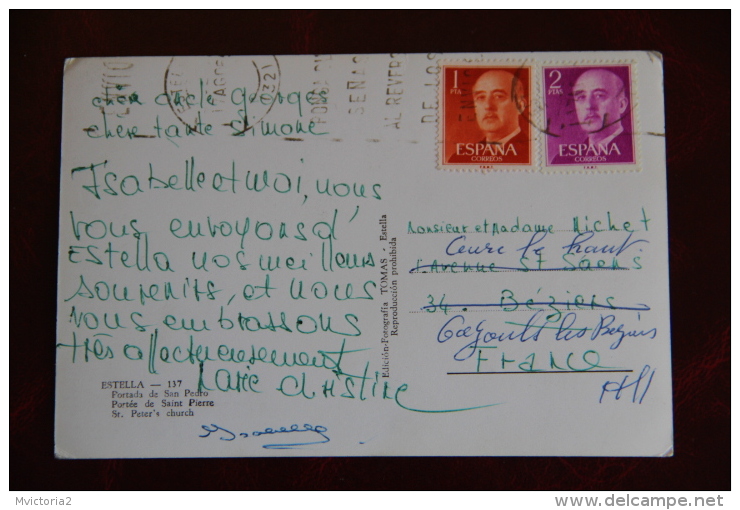 cher oncle Georges
chère tante Simone
Isabelle et moi, nous
vous envoyons d'
Estella nos meilleurs
souvenirs, et nous
vous embrassons
très affectueusement
Marie Christine
Isabelle
ESTELLA — 137
Portada de San Pedro
Portée de Saint Pierre
St. Peter's church
Edición-Fotografía TOMAS - Estella
Reproducción prohibida
1
PTA
ESPAÑA
CORREOS
2
PTAS
ESPAÑA
CORREOS
PONGA SUS
SEÑAS
AL REVERSO
DE LOS
Monsieur et Madame Michet
Avenue St Saëns
34. Béziers
les Béziers
FRANCE
Mvictoria2
www.delcampe.net